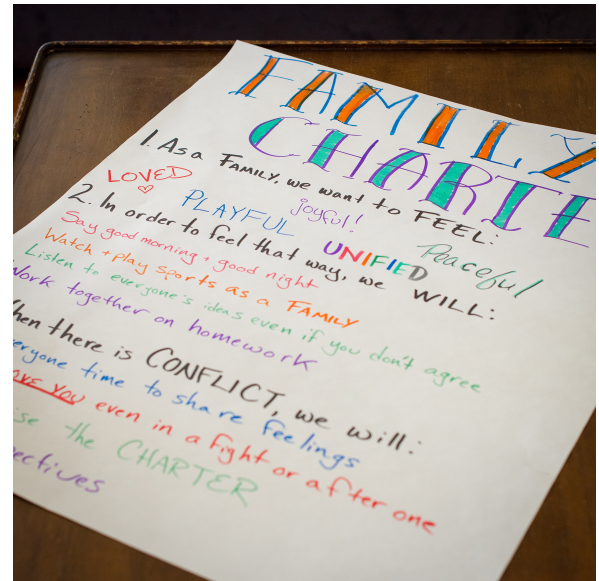 FAMILY
CHARTE
1. As a FAMILY, we want to FEEL:
LOVED PLAYFUL joyful! UNIFIED Peaceful
2. In order to feel that way, we WILL:
Say good morning + good night
Watch + play sports as a FAMILY
Listen to everyone's ideas even if you don't agree
Work together on homework
hen there is CONFLICT, we will:
eryone time to share feelings
YOU even in a fight or after one
the CHARTER
ectives